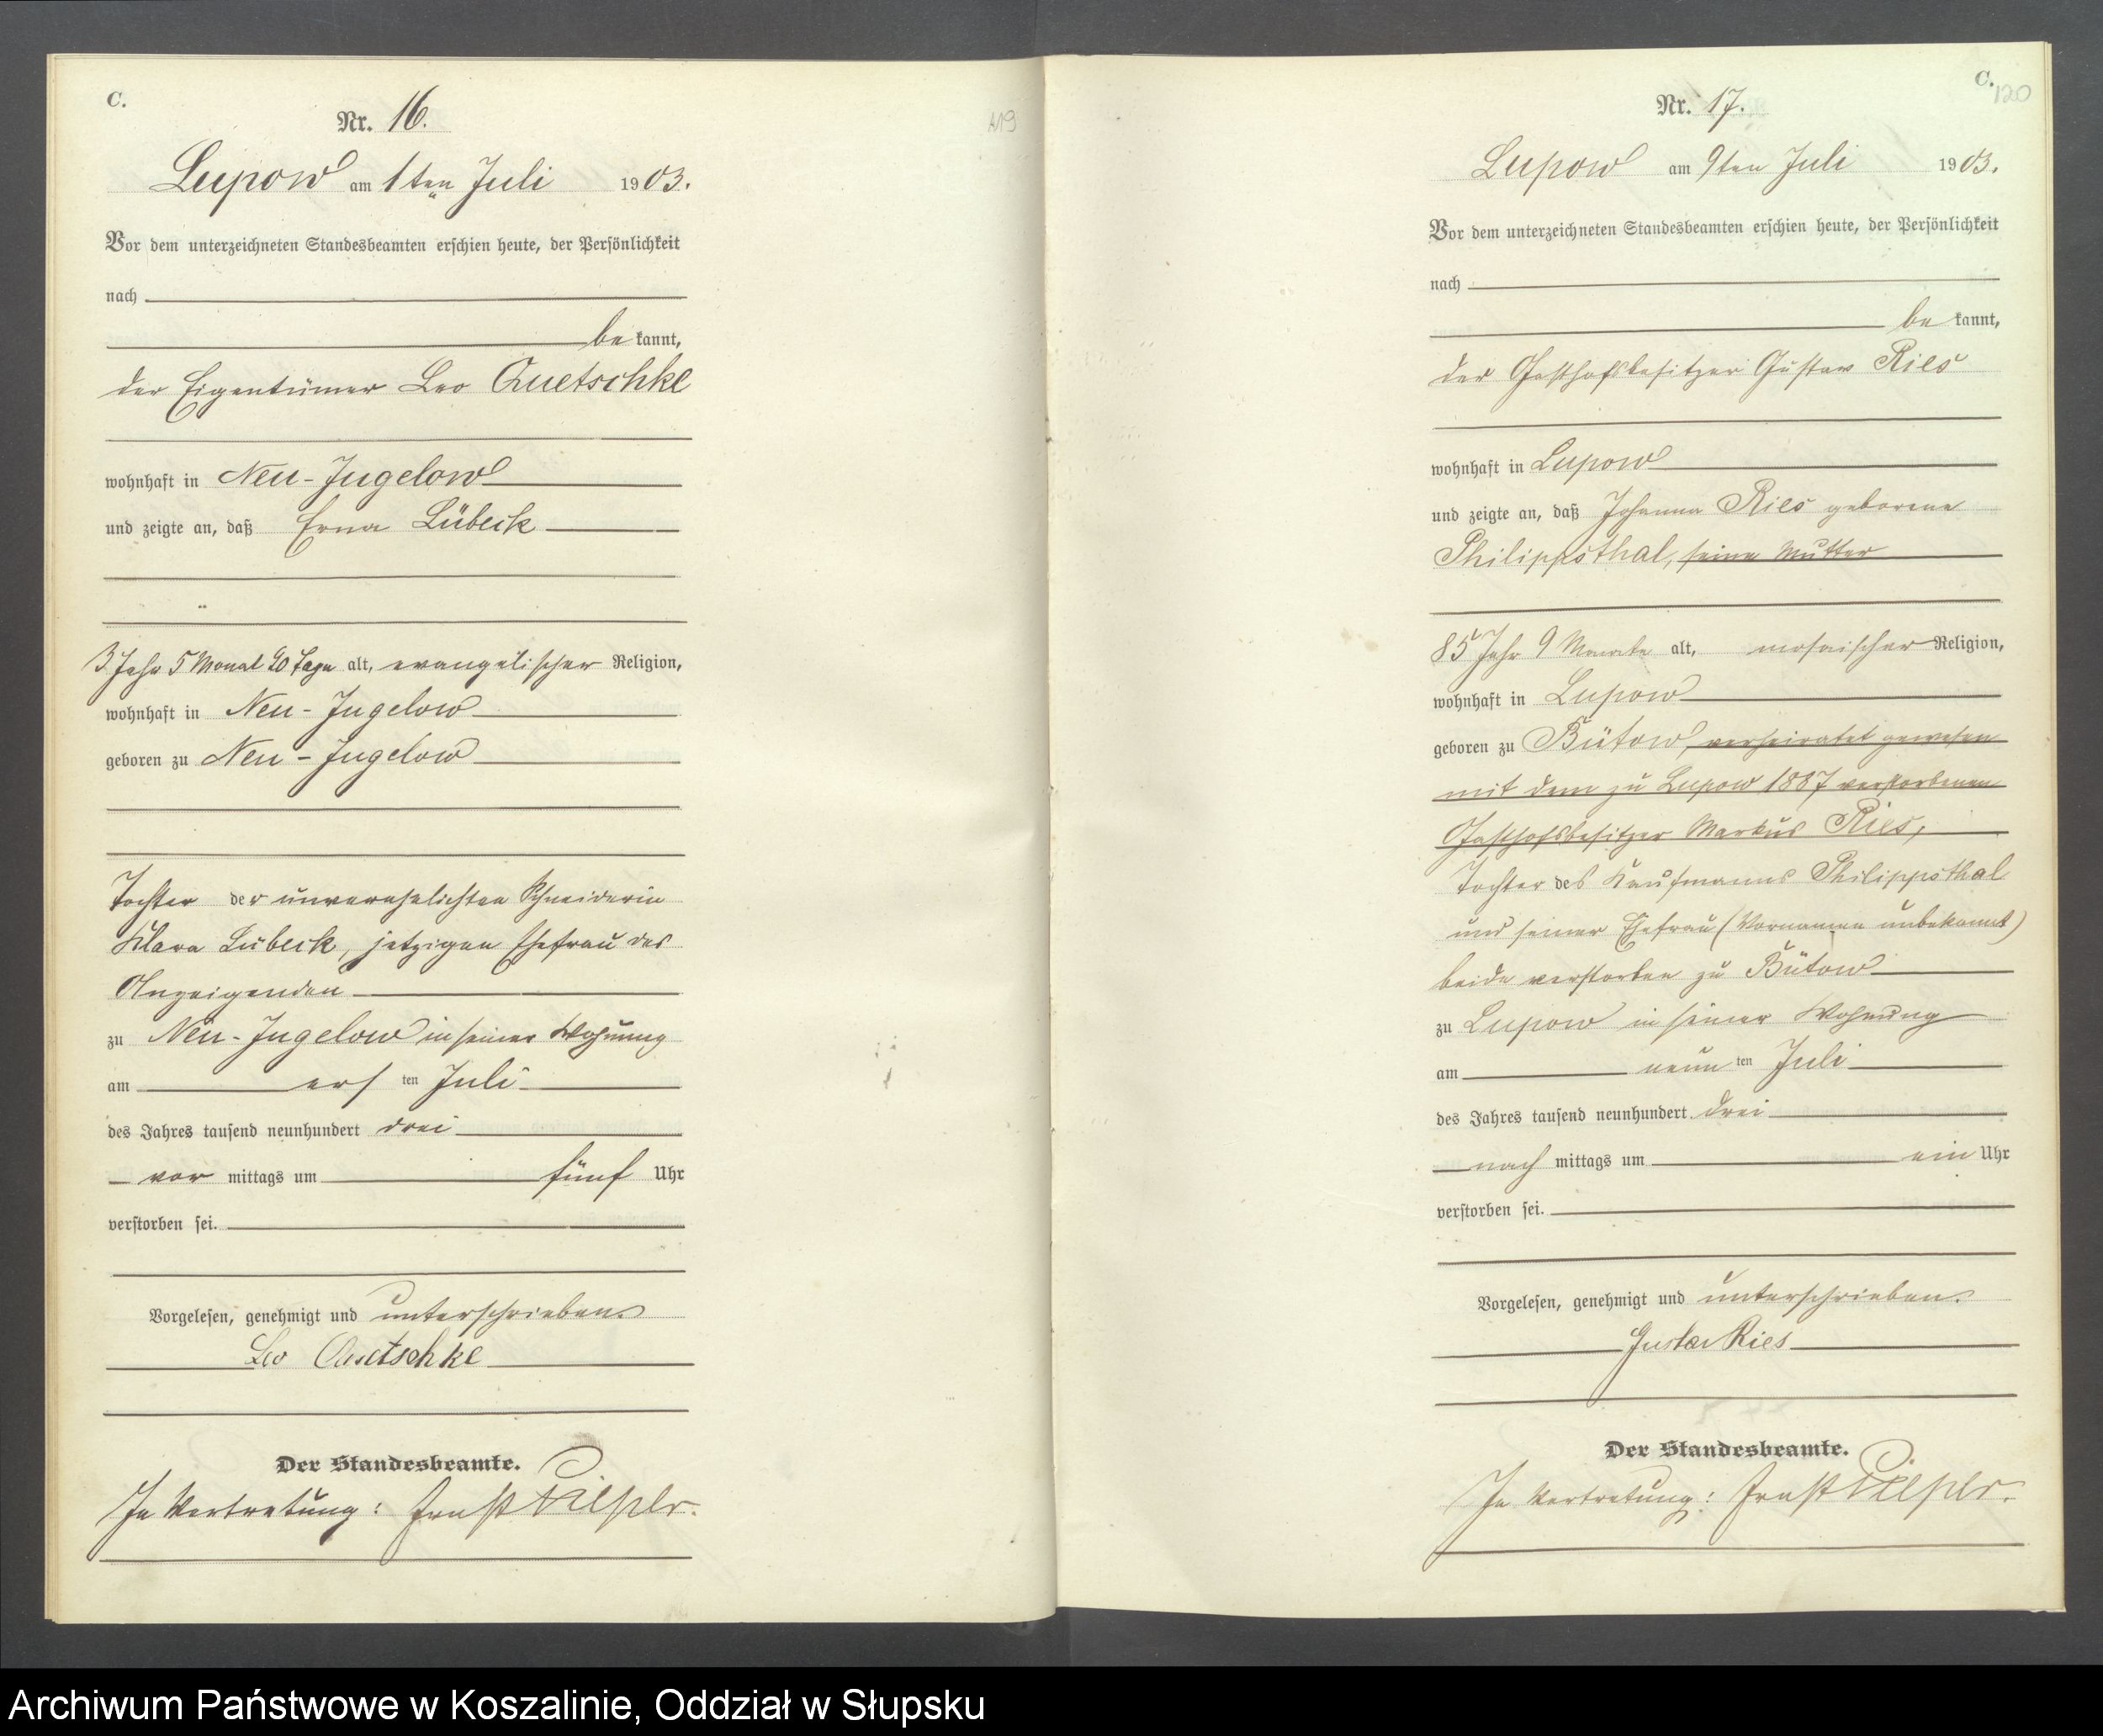 C.
Nr. 16.
Lupow am 1ten Juli 1903.
Vor dem unterzeichneten Standesbeamten erschien heute, der Persönlichkeit
nach
be kannt,
der Eigentümer Leo Quetschke
wohnhaft in Neu-Jugelow
und zeigte an, daß Erna Lübeck
3 Jahr 5 Monat 20 Tage alt, evangelischer Religion,
wohnhaft in Neu-Jugelow
geboren zu Neu-Jugelow
Tochter der unverehelichten Schneiderin
Klara Lübeck, jetzigen Ehefrau des
Anzeigenden
zu Neu-Jugelow in seiner Wohnung
am ers ten Juli
des Jahres tausend neunhundert drei
vor mittags um fünf Uhr
verstorben sei.
Vorgelesen, genehmigt und unterschrieben.
Leo Quetschke
Der Standesbeamte.
In Vertretung: Ernst
119
C.
120
Nr. 17.
Lupow am 9ten Juli 1903.
Vor dem unterzeichneten Standesbeamten erschien heute, der Persönlichkeit
nach
be kannt,
der Gasthofsbesitzer Gustav Ries
wohnhaft in Lupow
und zeigte an, daß Johanna Ries geborene
Philippsthal, seine Mutter
85 Jahr 9 Monate alt, mosaischer Religion,
wohnhaft in Lupow
geboren zu Bütow, verheiratet gewesen
mit dem zu Lupow 1887 verstorbenen
Gasthofsbesitzer Markus Ries,
Tochter des Kaufmanns Philippsthal
und seiner Ehefrau (Vornamen unbekannt)
beide verstorben zu Bütow
zu Lupow in seiner Wohnung
am neun ten Juli
des Jahres tausend neunhundert drei
nach mittags um ein Uhr
verstorben sei.
Vorgelesen, genehmigt und unterschrieben.
Gustav Ries
Der Standesbeamte.
In Vertretung: Ernst
Archiwum Państwowe w Koszalinie, Oddział w Słupsku